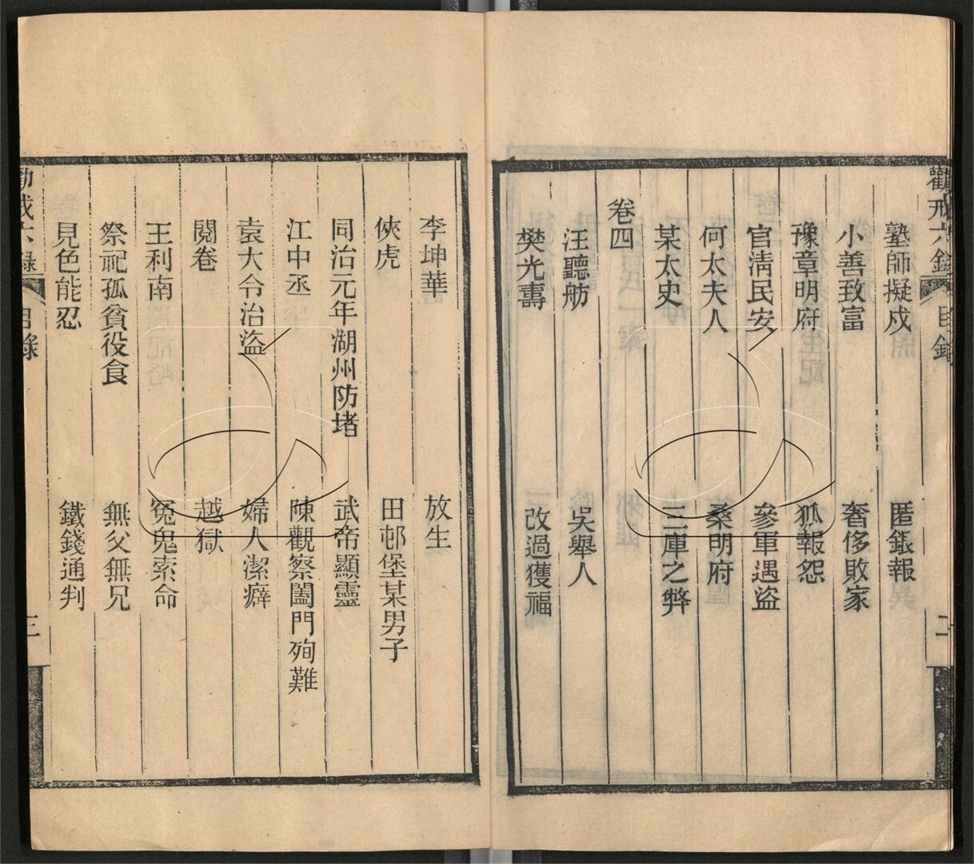 勸戒六錄 目錄 二
塾師擬戍 匿銀報
小善致富 奢侈敗家
豫章明府 狐報怨
官淸民安 參軍遇盜
何太夫人 桑明府
某太史 三庫之弊
卷四
汪聽舫 吳舉人
樊光壽 改過獲福
李坤華 放生
俠虎 田邨堡某男子
同治元年湖州防堵 武帝顯靈
江中丞 陳觀察闔門殉難
袁大令治盜 婦人潔癖
閱卷 越獄
王利南 冤鬼索命
祭祀孤貧役食 無父無兄
見色能忍 鐵錢通判
勸戒六錄 目錄 三